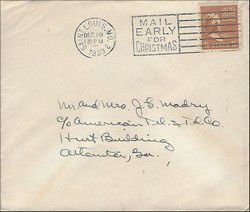 SAINT LOUIS, MO.
DEC 19
1939
MAIL
EARLY
FOR
CHRISTMAS
Mr and Mrs. J. S. Madry
c/o American Tel. & Tel. Co.
Hurt Building
Atlanta, Ga.